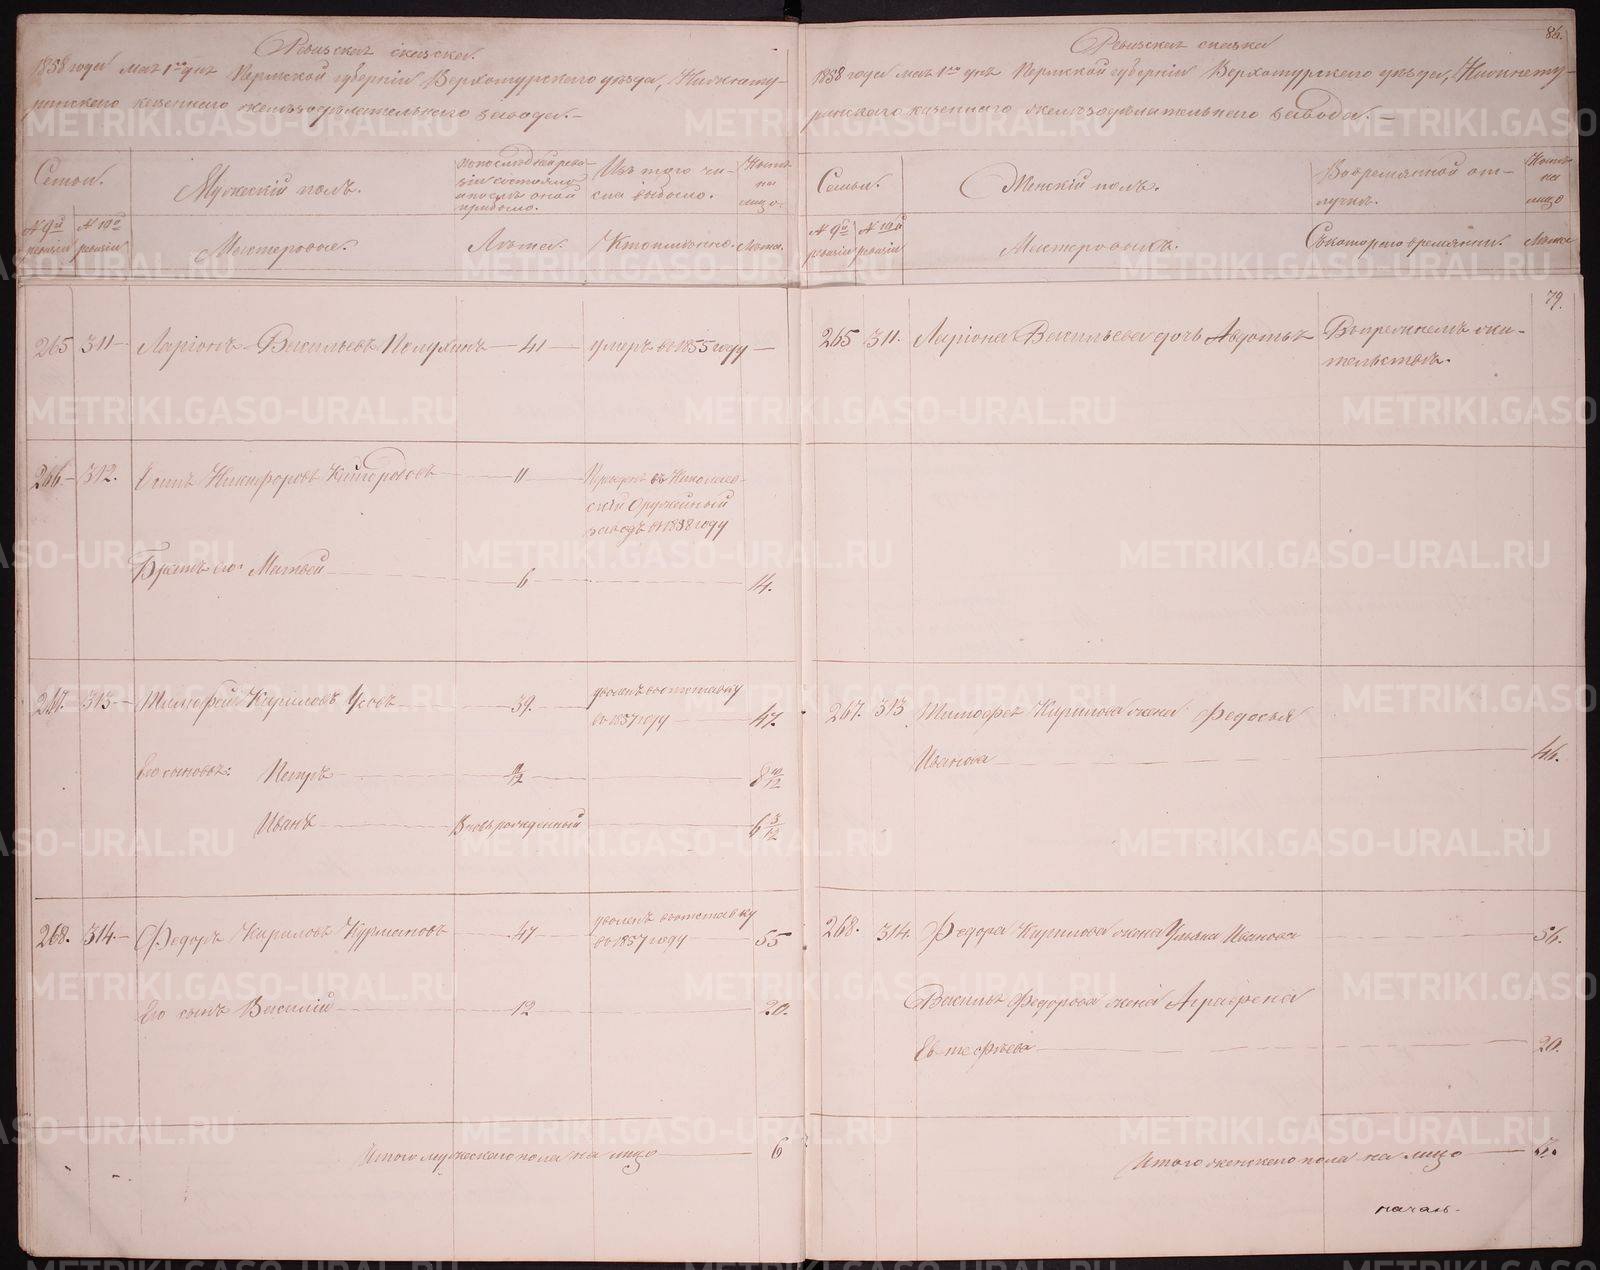 Ревизская сказка.
1858 года мая 1го дня Пермской губернии Верхотурского уезда, Нижнету-
ринского казенного железоделательного завода.-
Семьи.
Мужеский полъ.
По последней реви-
зии состояло
и после оной
прибыло.
Изъ того чи-
сла выбыло.
Ныне
на
лицо.
№ 9й ревизии
№ 10й ревизии
Мастеровые.
Лета.
Когда именно.
Лета.
265 311 Ларіонъ Васильевъ Полухинъ 41 умеръ въ 1855 году
266 312. Осипъ Никифоровъ Кайгородовъ 11
Николаев-
скій Оружейный
заводъ въ 1858 году
Братъ его Матвей 6 14.
267 313 Тимофей Кириловъ Усовъ 39. уволенъ въ отставку
въ 1857 году 47.
Его сыновья: Петръ 11/12 8 11/12
Иванъ Вновь рожденный 6 3/12
268. 314 Федоръ Кириловъ Курмановъ 47 уволенъ въ отставку
въ 1857 году 55
Его сынъ Василій 12 20.
Итого мужескаго пола на лицо 6
86.
Ревизская сказка
1858 года мая 1го дня Пермской губернии Верхотурского уезда, Нижнету-
ринского казенного железоделательного завода.-
Семьи.
Женскій полъ.
Во временной от-
лучке.
Ныне
на
лицо
№ 9й ревизии
№ 10й ревизии
Мастеровыхъ.
Съ котораго времени.
Лета
79.
265 311. Ларіона Васильева дочь Авдотья Въ прежнемъ жи-
тельстве.
267. 313 Тимофея Кирилова жена Федосья
Иванова 46.
268. 314. Федора Кирилова жена Ульяна Иванова 56.
Василья Федорова жена Аграфена
Евтефеева 20.
Итого женскаго пола на лицо 3.
началь-
METRIKI.GASO-URAL.RU